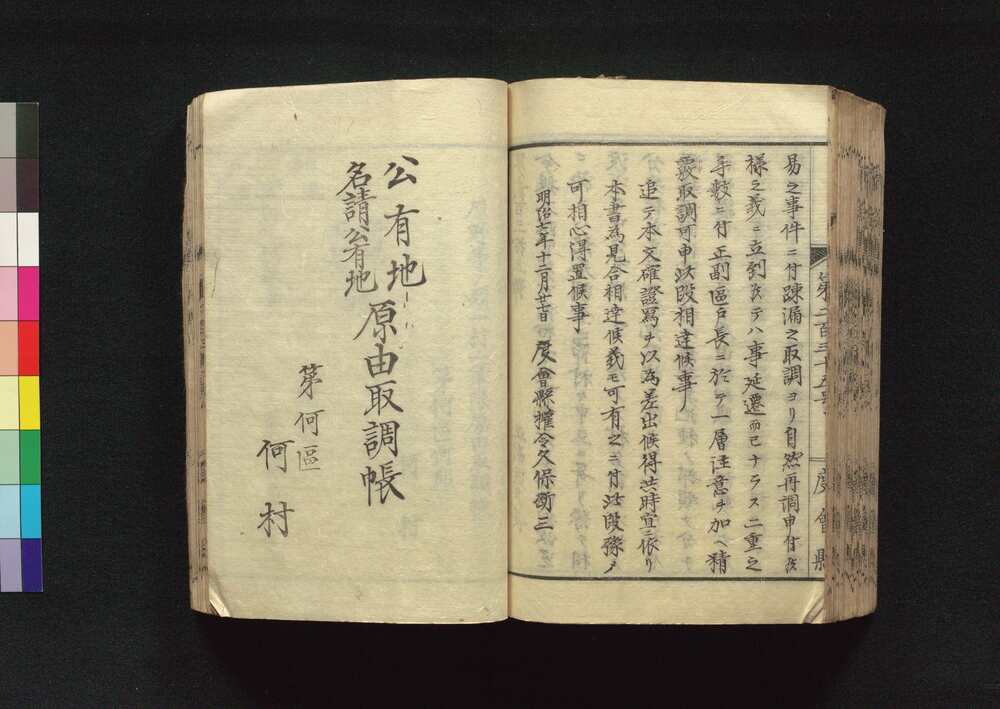 第二百三十五号
度會縣
易之事件ニ付疎漏之取調ヨリ自然再調申付候
様之義ニ立到候テハ事延遷而已ナラス二重之
手數ニ付正副區戸長ニ於テ一層注意ヲ加ヘ精
覈取調可申此段相達候事
追テ本文確證寫ヲ以為差出候得共時宜ニ依リ
本書為見合相達候義モ可有之ニ付此段豫メ
可相心得置候事
明治七年十二月廿日 度會縣權令久保斷三
公有地
名請公有地
原由取調帳
第何區
何村